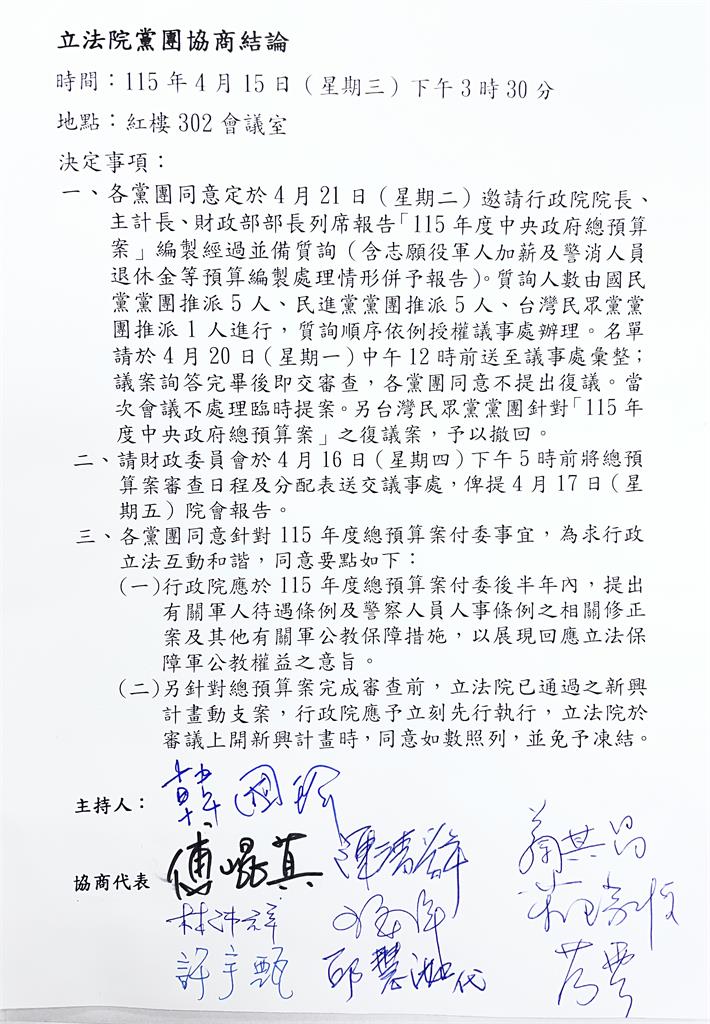 立法院黨團協商結論
時間：115年4月15日（星期三）下午3時30分
地點：紅樓302會議室
決定事項：
一、各黨團同意定於4月21日（星期二）邀請行政院院長、
主計長、財政部部長列席報告「115年度中央政府總預算
案」編製經過並備質詢（含志願役軍人加薪及警消人員
退休金等預算編製處理情形併予報告）。質詢人數由國民
黨黨團推派5人、民進黨黨團推派5人、台灣民眾黨黨
團推派1人進行，質詢順序依例授權議事處辦理。名單
請於4月20日（星期一）中午12時前送至議事處彙整；
議案詢答完畢後即交審查，各黨團同意不提出復議。當
次會議不處理臨時提案。另台灣民眾黨黨團針對「115年
度中央政府總預算案」之復議案，予以撤回。
二、請財政委員會於4月16日（星期四）下午5時前將總預
算案審查日程及分配表送交議事處，俾提4月17日（星
期五）院會報告。
三、各黨團同意針對115年度總預算案付委事宜，為求行政
立法互動和諧，同意要點如下：
（一）行政院應於115年度總預算案付委後半年內，提出
有關軍人待遇條例及警察人員人事條例之相關修正
案及其他有關軍公教保障措施，以展現回應立法保
障軍公教權益之意旨。
（二）另針對總預算案完成審查前，立法院已通過之新興
計畫動支案，行政院應予立刻先行執行，立法院於
審議上開新興計畫時，同意如數照列，並免予凍結。
主持人：韓國瑜
協商代表 傅崐萁 陳清龍
林沛祥
許宇甄 邱慧洳代